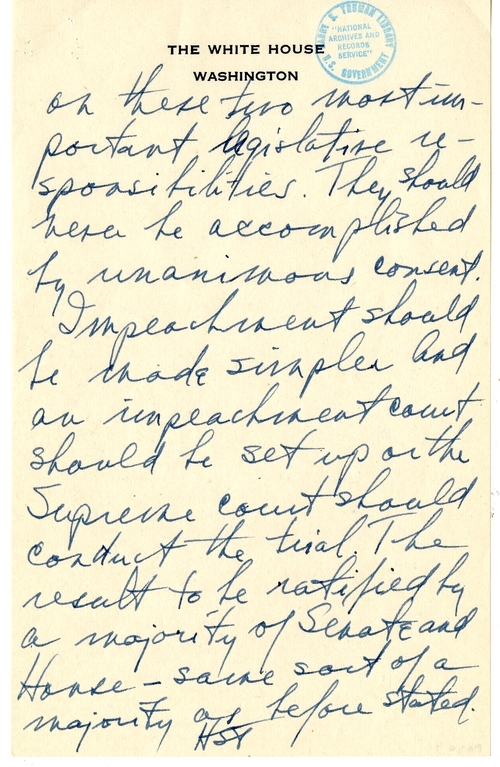 HARRY S. TRUMAN LIBRARY
"NATIONAL
ARCHIVES AND
RECORDS
SERVICE"
U.S. GOVERNMENT
THE WHITE HOUSE
WASHINGTON
on these two most im-
portant legislative re-
sponsibilities. They should
never be accomplished
by unanimous consent.
Impeachment should
be made simpler and
an impeachment court
should be set up or the
Supreme court should
conduct the trial. The
result to be ratified by
a majority of Senate and
House - same sort of a
majority as before stated.
HST